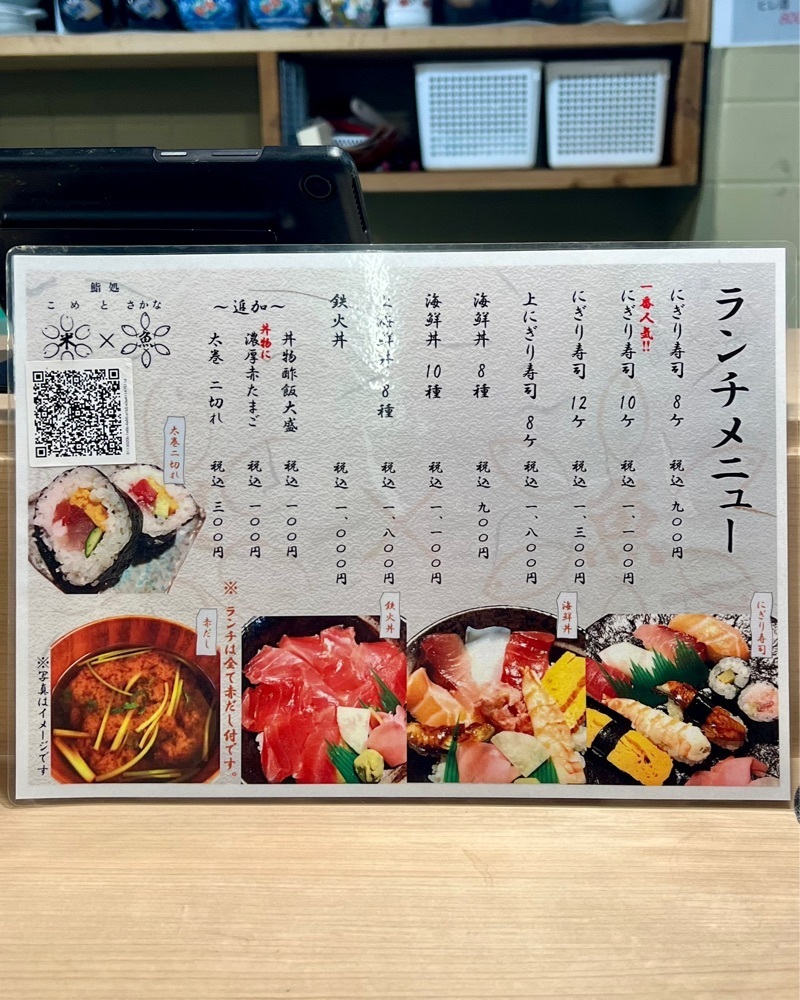 ランチメニュー
にぎり寿司 8ケ 税込 九〇〇円
一番人気!!
にぎり寿司 10ケ 税込 一、一〇〇円
にぎり寿司 12ケ 税込 一、三〇〇円
上にぎり寿司 8ケ 税込 一、八〇〇円
海鮮丼 8種 税込 九〇〇円
海鮮丼 10種 税込 一、一〇〇円
海鮮丼 8種 税込 一、八〇〇円
鉄火丼 税込 一、〇〇〇円
〜追加〜
丼物酢飯大盛 税込 一〇〇円
丼物に
濃厚赤たまご 税込 一〇〇円
太巻 二切れ 税込 三〇〇円
鮨処
こめとさかな
米×魚
太巻二切れ
にぎり寿司
海鮮丼
鉄火丼
※ランチは全て赤だし付です。
赤だし
※写真はイメージです